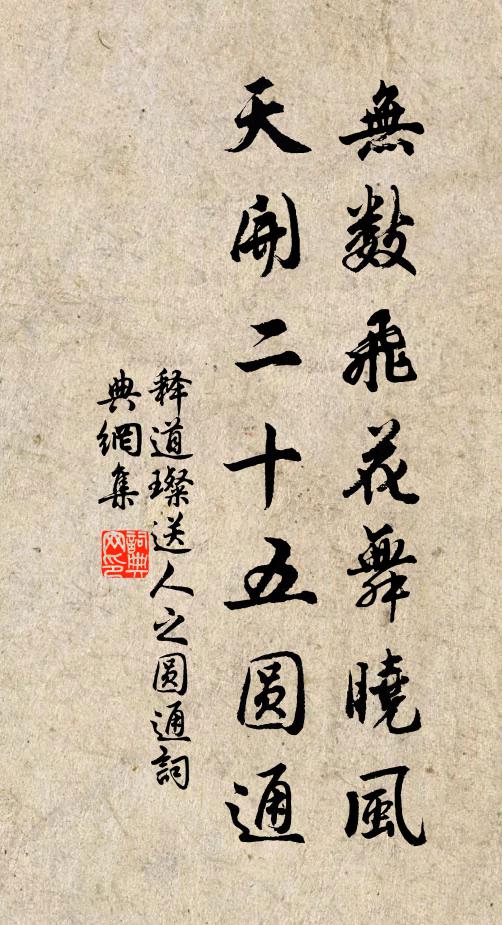 無數飛花舞曉風
天開二十五圓通
释道璨送人之圆通詞
典網集
詞典網印